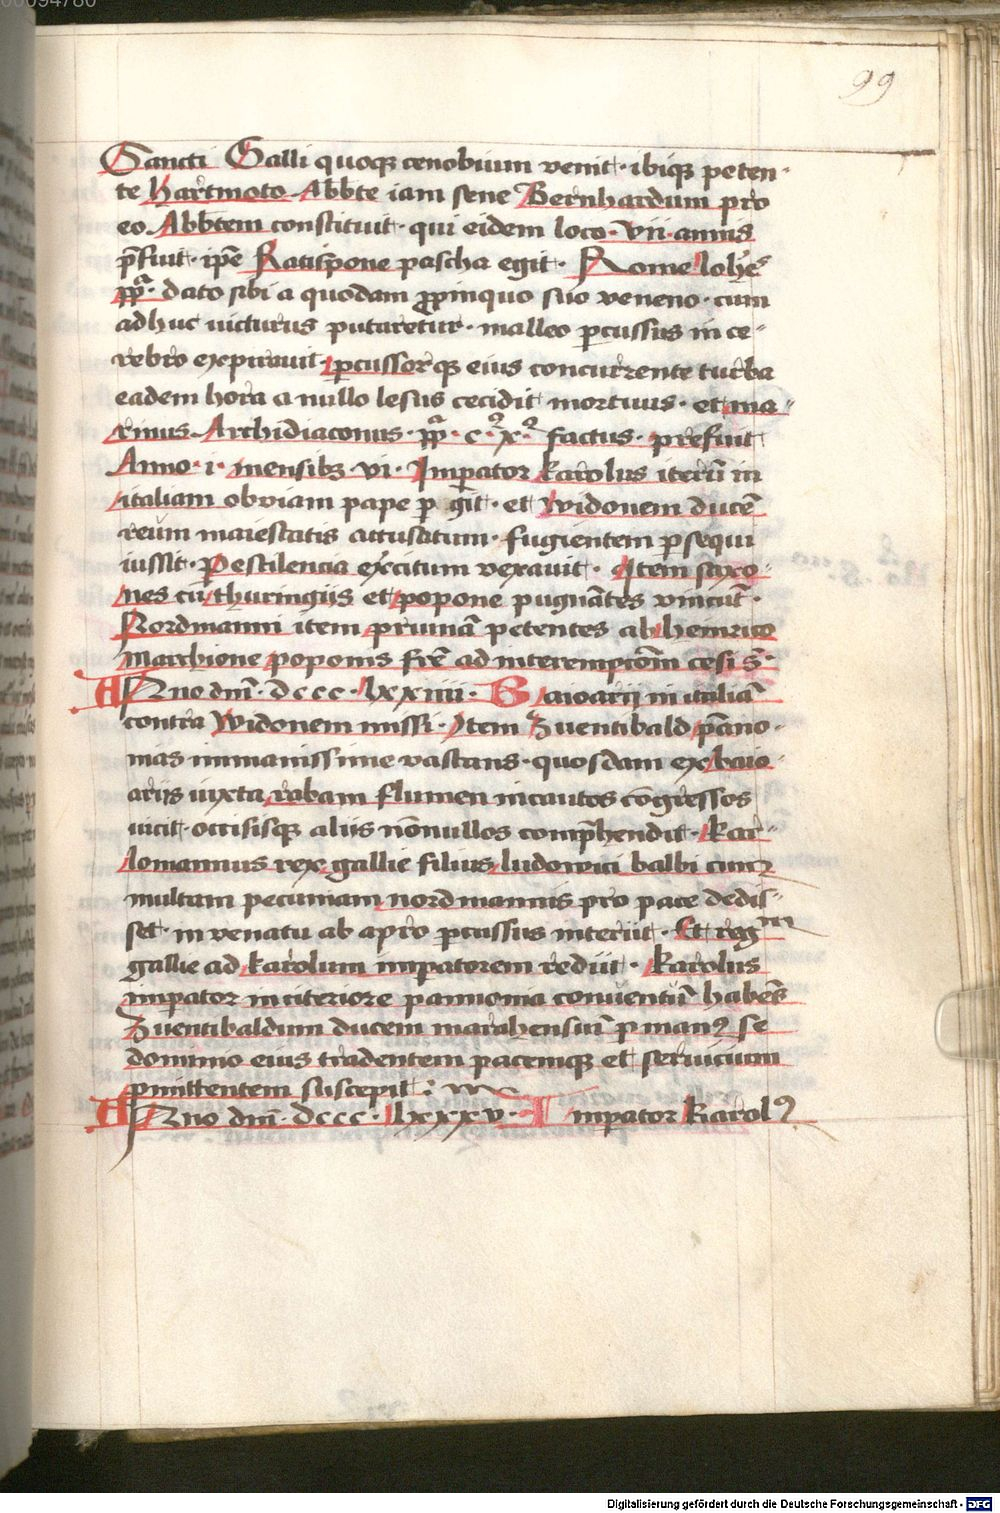 00094780
99
Sancti Galli quoqꝫ cenobium venit · ibiqꝫ peten-
te hartmoto Abbte iam sene Bernhardum pro
eo Abbtem constituit · qui eidem loco · vii · annis
p̄fuit · ip̄e Ratisp̄one pascha egit · Rome Ioh̄es
pp̄a · dato sibi a quodam ꝓpinquo suo veneno · cum
adhuc victurus putaretur · malleo ꝑcussus in ce-
rebro expirauit · ꝑcussorqꝫ eius concurrente turba
eadem hora a nullo lesus cecidit mortuus · et ma-
rinus Archidiaconus · pp̄a · c · x · factus · prefuit
Anno · i · mensibꝫ · vi · Imꝑator karolus iterū in
italiam obviam pape ꝑgit · et widonem ducē
reum maiestatis accusatum · fugientem ꝑsequi
iussit · Pestilencia exercitum vexauit · Item saxo-
nes cū thuringiis et popone pugnātes vincūt ·
Nordmanni item prumiā petentes ab heinrico
Marchione poponis fr̄e ad interempcōm cesi s̄t ·
ANno dn̄i · dccc · lxxxiiii · Baioarij in italiā
contra widonem missi · Item Zuentibald pāno-
nias inmanissime vastans · quosdam ex baio-
ariis iuxta rabam flumen incautos cōgressos
vicit · occisisqꝫ aliis nōnullos comp̄hendit · kar-
lomannus rex gallie filius ludowici balbi cum
multam pecuniam nordmannis pro pace dedis-
set · in venatu ab apro ꝑcussus interiit · Et regnm
gallie ad karolum imꝑatorem rediit · karolus
imꝑator in citeriore pannonia conuentū habēs
Zuentibaldum ducem marahensiū ꝑ manꝰ se
domino eius tradentem pacemqꝫ et seruicium
ꝓmittentem suscepit :
ANno dn̄i · dccc · lxxxv · Imꝑator karolꝰ
Digitalisierung gefördert durch die Deutsche Forschungsgemeinschaft - DFG